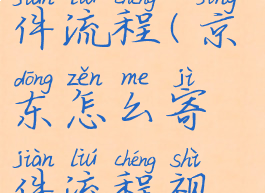 jiàn liú chéng jīng
件流程(京
dōng zěn me jì
东怎么寄
jiàn liú chéng shì
件流程视